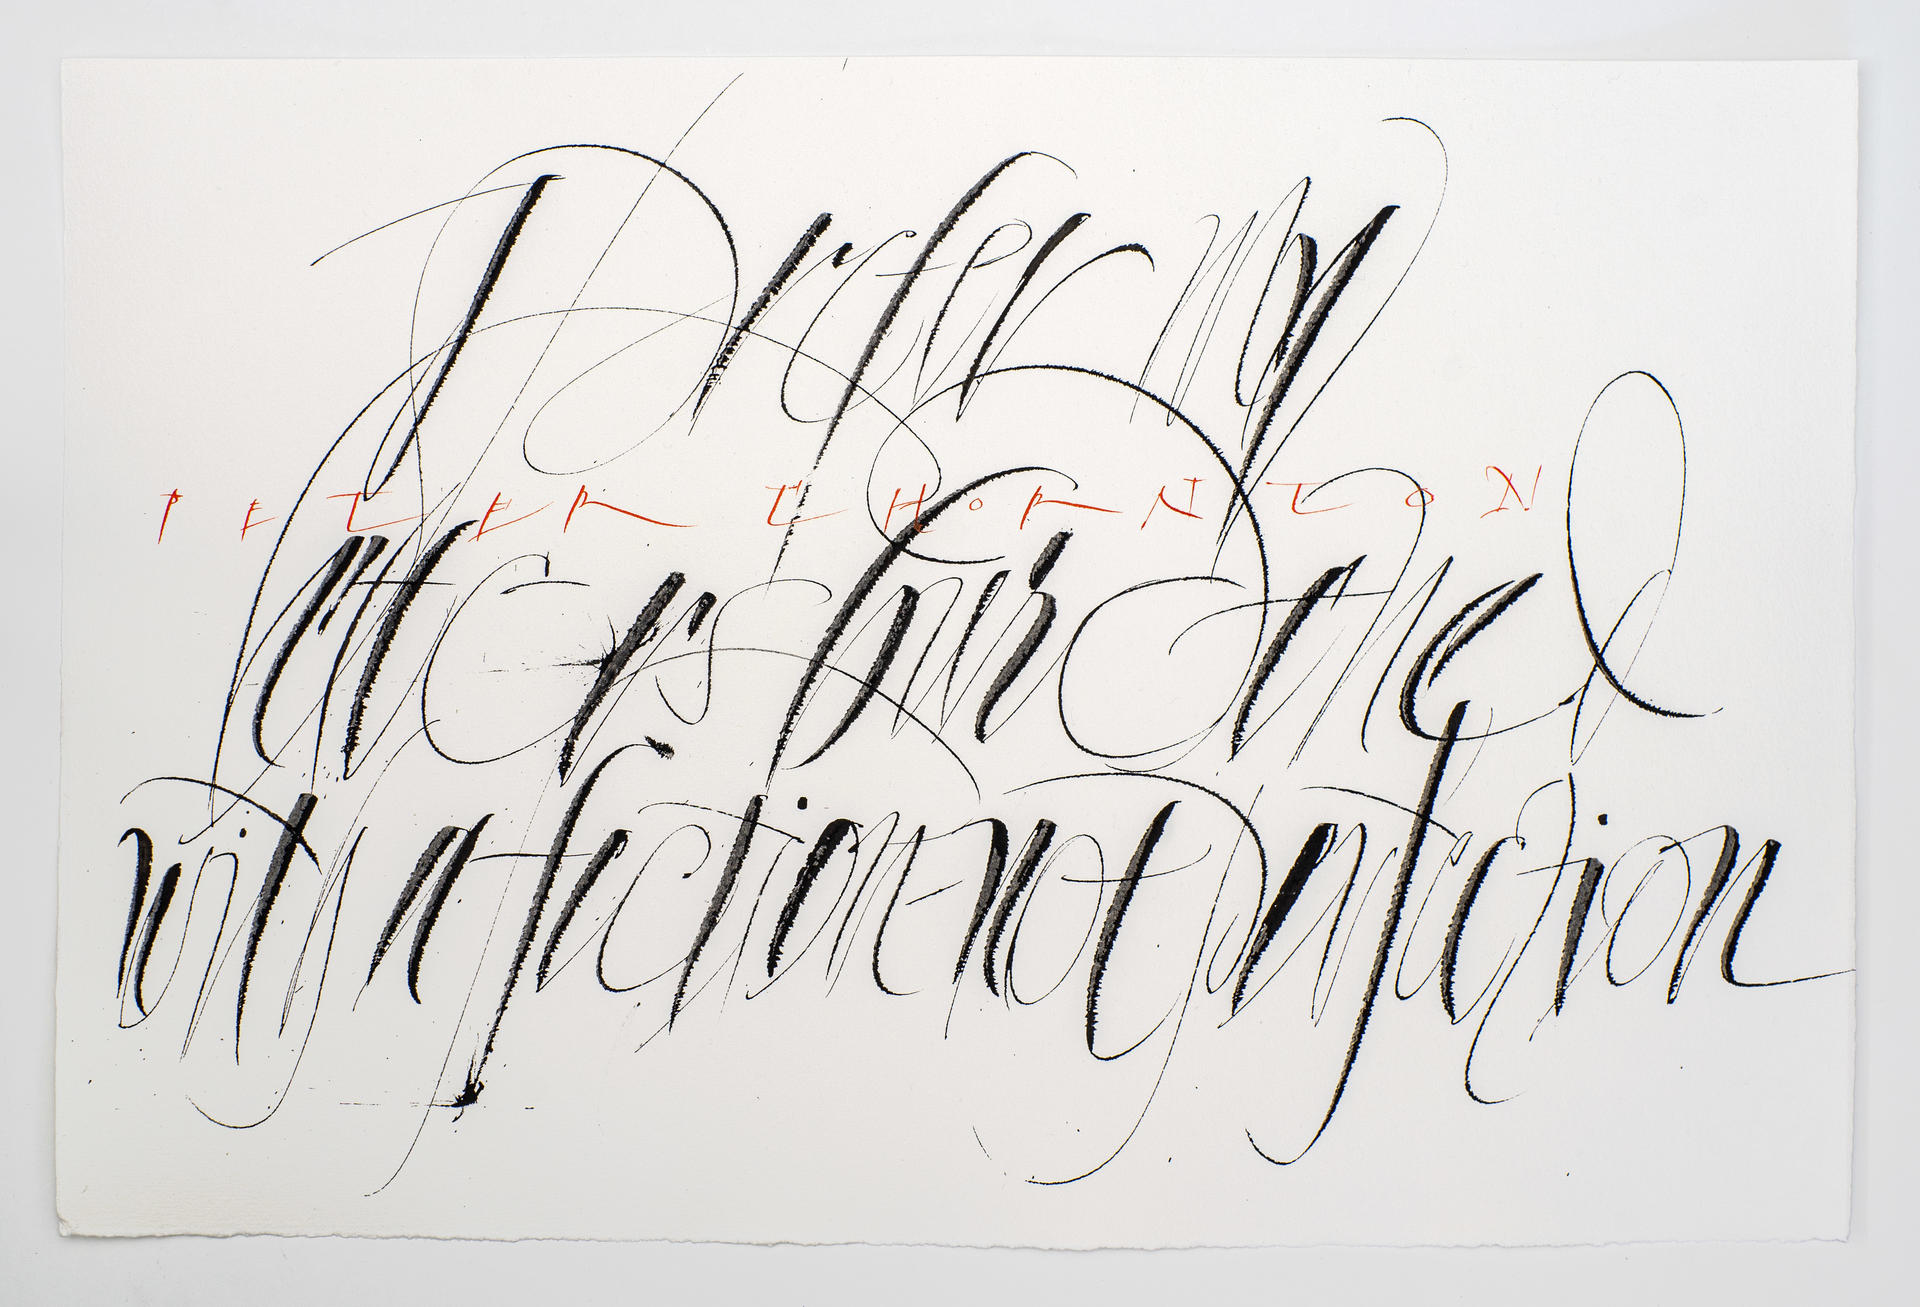 Prefer my
PETER THORNTON
letters
with affection - not perfection